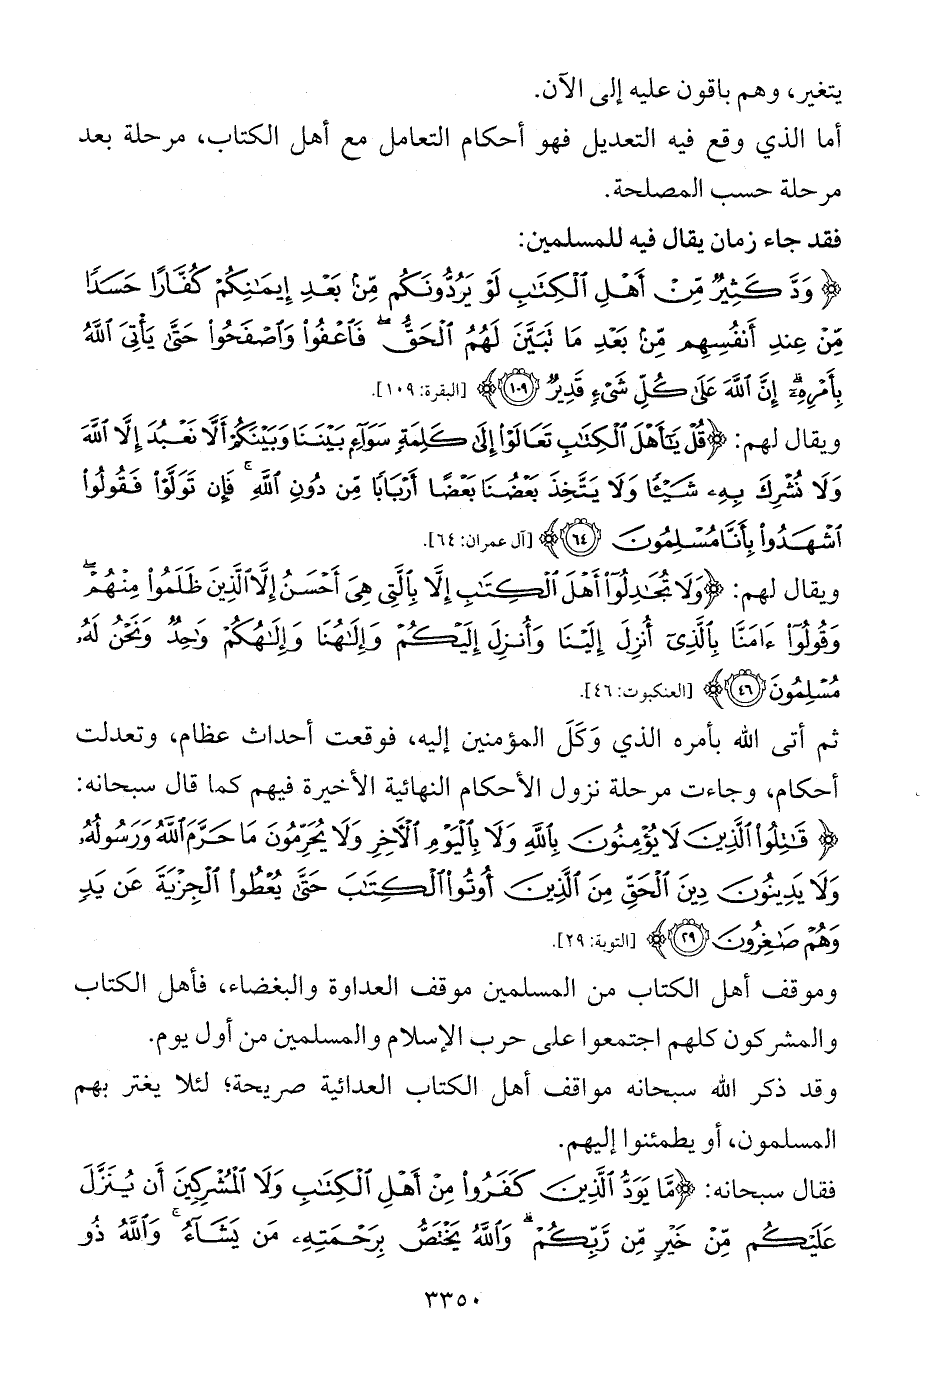 يتغير، وهم باقون عليه إلى الآن.
أما الذي وقع فيه التعديل فهو أحكام التعامل مع أهل الكتاب، مرحلة بعد
مرحلة حسب المصلحة.
فقد جاء زمان يقال فيه للمسلمين:
﴿وَدَّ كَثِيرٌ مِّنْ أَهْلِ ٱلْكِتَٰبِ لَوْ يَرُدُّونَكُم مِّنۢ بَعْدِ إِيمَٰنِكُمْ كُفَّارًا حَسَدًا
مِّنْ عِندِ أَنفُسِهِم مِّنۢ بَعْدِ مَا تَبَيَّنَ لَهُمُ ٱلْحَقُّ ۖ فَٱعْفُوا۟ وَٱصْفَحُوا۟ حَتَّىٰ يَأْتِىَ ٱللَّهُ
بِأَمْرِهِۦٓ ۗ إِنَّ ٱللَّهَ عَلَىٰ كُلِّ شَىْءٍ قَدِيرٌ ١٠٩﴾ [البقرة: ١٠٩].
ويقال لهم: ﴿قُلْ يَٰٓأَهْلَ ٱلْكِتَٰبِ تَعَالَوْا۟ إِلَىٰ كَلِمَةٍ سَوَآءٍۭ بَيْنَنَا وَبَيْنَكُمْ أَلَّا نَعْبُدَ إِلَّا ٱللَّهَ
وَلَا نُشْرِكَ بِهِۦ شَيْـًٔا وَلَا يَتَّخِذَ بَعْضُنَا بَعْضًا أَرْبَابًا مِّن دُونِ ٱللَّهِ ۚ فَإِن تَوَلَّوْا۟ فَقُولُوا۟
ٱشْهَدُوا۟ بِأَنَّا مُسْلِمُونَ ٦٤﴾ [آل عمران: ٦٤].
ويقال لهم: ﴿وَلَا تُجَٰدِلُوٓا۟ أَهْلَ ٱلْكِتَٰبِ إِلَّا بِٱلَّتِى هِىَ أَحْسَنُ إِلَّا ٱلَّذِينَ ظَلَمُوا۟ مِنْهُمْ ۖ
وَقُولُوٓا۟ ءَامَنَّا بِٱلَّذِىٓ أُنزِلَ إِلَيْنَا وَأُنزِلَ إِلَيْكُمْ وَإِلَٰهُنَا وَإِلَٰهُكُمْ وَٰحِدٌ وَنَحْنُ لَهُۥ
مُسْلِمُونَ ٤٦﴾ [العنكبوت: ٤٦].
ثم أتى الله بأمره الذي وَكَلَ المؤمنين إليه، فوقعت أحداث عظام، وتعدلت
أحكام، وجاءت مرحلة نزول الأحكام النهائية الأخيرة فيهم كما قال سبحانه:
﴿قَٰتِلُوا۟ ٱلَّذِينَ لَا يُؤْمِنُونَ بِٱللَّهِ وَلَا بِٱلْيَوْمِ ٱلْءَاخِرِ وَلَا يُحَرِّمُونَ مَا حَرَّمَ ٱللَّهُ وَرَسُولُهُۥ
وَلَا يَدِينُونَ دِينَ ٱلْحَقِّ مِنَ ٱلَّذِينَ أُوتُوا۟ ٱلْكِتَٰبَ حَتَّىٰ يُعْطُوا۟ ٱلْجِزْيَةَ عَن يَدٍ
وَهُمْ صَٰغِرُونَ ٢٩﴾ [التوبة: ٢٩].
وموقف أهل الكتاب من المسلمين موقف العداوة والبغضاء، فأهل الكتاب
والمشركون كلهم اجتمعوا على حرب الإسلام والمسلمين من أول يوم.
وقد ذكر الله سبحانه مواقف أهل الكتاب العدائية صريحة؛ لئلا يغتر بهم
المسلمون، أو يطمئنوا إليهم.
فقال سبحانه: ﴿مَّا يَوَدُّ ٱلَّذِينَ كَفَرُوا۟ مِنْ أَهْلِ ٱلْكِتَٰبِ وَلَا ٱلْمُشْرِكِينَ أَن يُنَزَّلَ
عَلَيْكُم مِّنْ خَيْرٍ مِّن رَّبِّكُمْ ۗ وَٱللَّهُ يَخْتَصُّ بِرَحْمَتِهِۦ مَن يَشَآءُ ۚ وَٱللَّهُ ذُو
٣٣٥٠